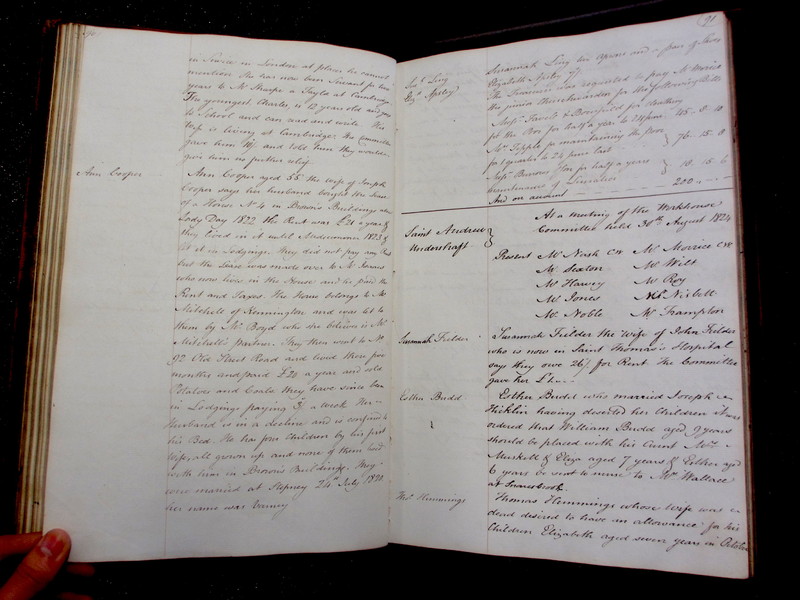 90
in Service in London at places he cannot
mention. She has now been Servant for two
years to Mr Sharpe a Taylor at Cambridge
The youngest Charles, is 12 years old and goes
to School and can read and write. His
Wife is living at Cambridge. The Committee
gave him and told him they would
give him no further relief
Ann Cooper
Ann Cooper aged 55 the wife of Joseph
Cooper says her husband bought the Lease
of a House No 4 in Brown's Buildings
Lady Day 1822 the Rent was £21 a year &
they lived in it until Midsummer 1823 &
let it in Lodgings. They did not pay any
but the Lease was made over to Mr
who now lives in the House and he paid the
Rent and Taxes. The House belongs to Mr
Mitchell of Kennington and was let to
them by Mr Boyd who she believes is Mr
Mitchell's partner. They then went to No
90 Old Street Road and lived there few
months and paid £20 a year and sold
Potatoes and Coals they have since been
in Lodgings paying 3/ a week. Her
Husband is in a decline and is confined to
his Bed. He has four Children by his first
Wife, all grown up and none of them lived
with him in Brown's Buildings. They
were married at Stepney 24th July 1821
her name was
91
Susannah Ling
Susannah Ling two Aprons and a pair of Shoes
Elizth Apsley
Elizabeth Apsley
The Treasurer was requested to pay Mr Morrice
the junior Churchwarden for the following Bills
Messrs & Bousfield for
for the Poor for half a year to 24 June 45 - 8 - 10
Mr Tipple for maintaining the Poor
for quarter to 24 June last } 76 - 15 - 8
Messrs Burrows for half a years
maintenance of Lunatics } 10 - 15 - 6
And on account 200 - -
At a meeting of the Workhouse
Saint Andrew
Undershaft }
Committee held 30th August 1824
Present Mr Nash CW Mr Morrice CW
Mr Sexton Mr Wilt
Mr Harvey Mr Roy
Mr Jones Mr Nisbett
Mr Noble Mr Frampton
Susannah Fielder
Susannah Fielder the Wife of John Fielder
who is now in Saint Thomas's Hospital
says they owe 26/ for Rent. The Committee
gave her
Esther Budd
Esther Budd who married Joseph
Hicklin having deserted her Children it was
ordered that William Budd aged 9 years
should be placed with his Aunt Mrs
Muskett & Eliza aged 7 years & Esther aged
6 years be sent to nurse to Mrs Wallace
at Snaresbrook
Thos Hemmings
Thomas Hemmings whose Wife was
dead desired to have an allowance for his
Children Elizabeth aged seven years in October